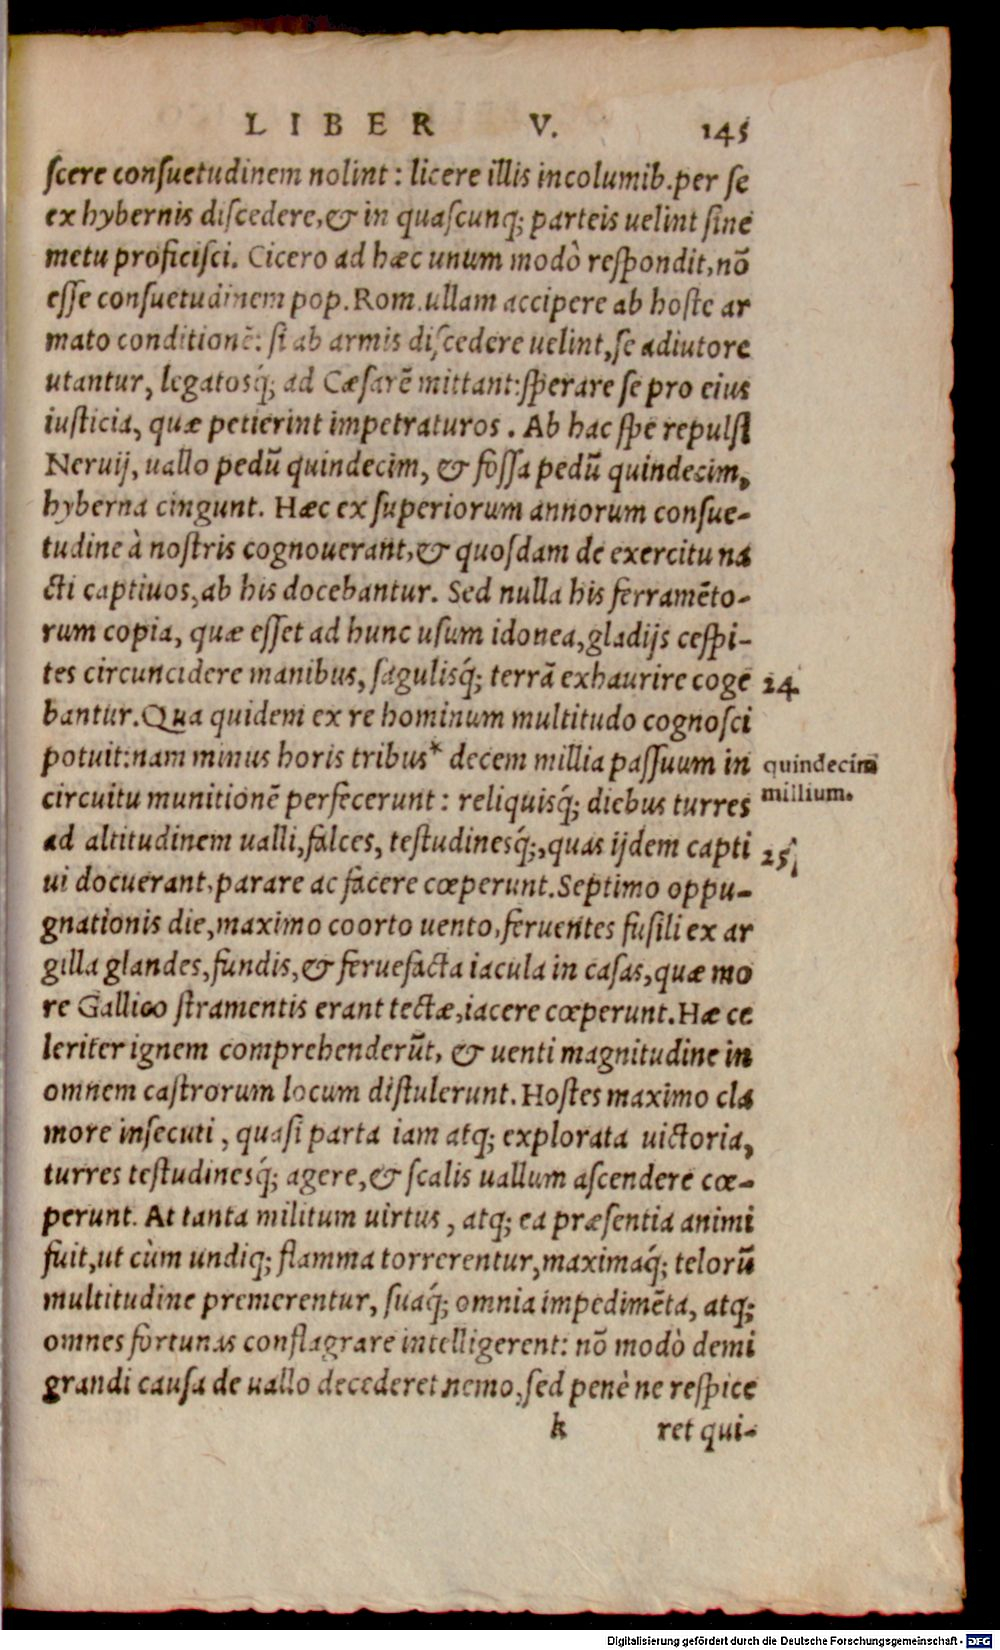 LIBER V. 145
scere consuetudinem nolint: licere illis incolumib. per se
ex hybernis discedere, & in quascunq; parteis uelint sine
metu proficisci. Cicero ad hæc unum modò respondit, nõ
esse consuetudinem pop. Rom. ullam accipere ab hoste ar
mato conditionẽ: si ab armis discedere uelint, se adiutore
utantur, legatosq́; ad Cæsarẽ mittant: sperare se pro eius
iusticia, quæ petierint impetraturos. Ab hac spe repulsi
Neruij, uallo pedũ quindecim, & fossa pedũ quindecim,
hyberna cingunt. Hæc ex superiorum annorum consue-
tudine à nostris cognouerant, & quosdam de exercitu na
cti captiuos, ab his docebantur. Sed nulla his ferramẽto-
rum copia, quæ esset ad hunc usum idonea, gladijs cespi-
tes circuncidere manibus, sagulisq́; terrã exhaurire coge
24.
bantur. Qua quidem ex re hominum multitudo cognosci
potuit: nam minus horis tribus* decem millia passuum in
quindecim
circuitu munitionẽ perfecerunt: reliquisq́; diebus turres
millium.
ad altitudinem ualli, falces, testudinesq́;, quas ijdem capti
25
ui docuerant, parare ac facere cœperunt. Septimo oppu-
gnationis die, maximo coorto uento, feruentes fusili ex ar
gilla glandes, fundis, & feruefacta iacula in casas, quæ mo
re Gallico stramentis erant tectæ, iacere cœperunt. Hæ ce
leriter ignem comprehenderũt, & uenti magnitudine in
omnem castrorum locum distulerunt. Hostes maximo cla
more insecuti, quasi parta iam atq; explorata uictoria,
turres testudinesq́; agere, & scalis uallum ascendere cœ-
perunt. At tanta militum uirtus, atq; ea præsentia animi
fuit, ut cùm undiq; flamma torrerentur, maximaq́; telorũ
multitudine premerentur, suaq́; omnia impedimẽta, atq;
omnes fortunas conflagrare intelligerent: nõ modò demi
grandi causa de uallo decederet nemo, sed penè ne respice
k ret qui-
Digitalisierung gefördert durch die Deutsche Forschungsgemeinschaft - DFG